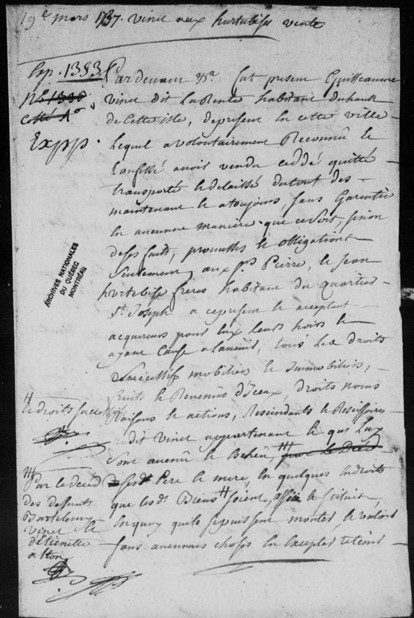 19e mars 1737. vinet aux hurtubise vente
Exp. 1383
Expp.
Pardevant &c. fut present Guillaume
vinet dit Larente habitant du haut
de cette isle, de present en cette ville
Lequel a volontairement Reconnû &
Confessé avoir vendu cedde quitté
transporté & delaissé du tout des
maintenant & a toujours, sans Garentie
en aucunne maniere que ce soit, sinon
de ses faits, promesses & obligations
Seulement aux Srs. Pierre, & Jean
hurtubise freres habitans du quartier
St. Joseph a ce present & acceptant
acquereurs pour eux leurs hoirs &
ayans Cause a l'avenir, tous les droits
Successifs mobiliers & Immobiliers,
fruits & Revenus d'Iceux, droits noms
Raisons & actions, Rescindants & Rescisoires
dit vinet appartenant &
sont avenû & Echeu
Pere & mere, en quelques endroits
que lesd. Biens soient, assis & situés,
En quoy qu'ils se puissent monter & valoir
sans aucunnes choses En Excepter retenir
& droits
Par le deced
des deffunts
Bartelemy
vinet &
d'Etiennette
alton
ARCHIVES NATIONALES
DU QUÉBEC
MONTRÉAL